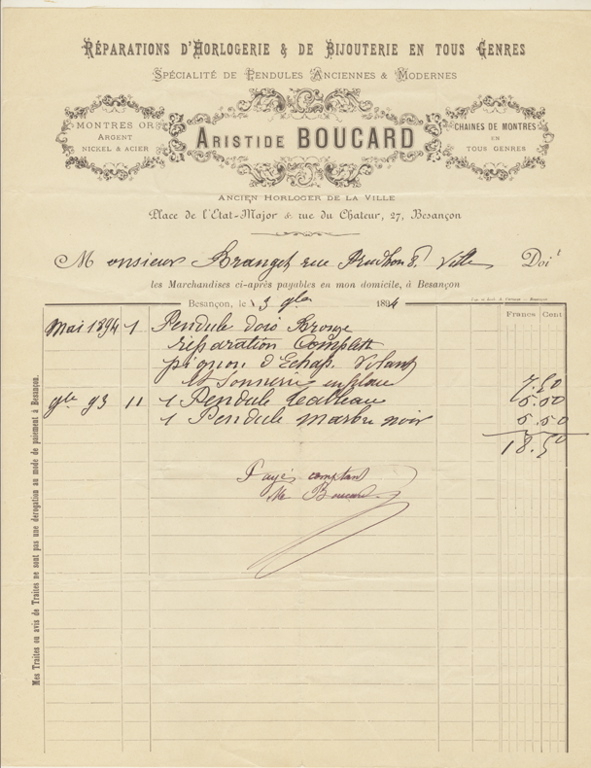 RÉPARATIONS D'HORLOGERIE & DE BIJOUTERIE EN TOUS GENRES
SPÉCIALITÉ DE PENDULES ANCIENNES & MODERNES
MONTRES OR
ARGENT
NICKEL & ACIER
ARISTIDE BOUCARD
CHAINES DE MONTRES
EN
TOUS GENRES
ANCIEN HORLOGER DE LA VILLE
Place de l'État-Major & rue du Chateur, 27, Besançon
Monsieur rue Prudhon 8. Ville Doit
les Marchandises ci-après payables en mon domicile, à Besançon
Besançon, le 3 9bre 1894
Francs Cent
Mai 1894 1 Pendule Bronze
réparation Complette
pignon d'Echap. Volant
et Sonnerie en place 7.50
9bre 93 11 1 Pendule tableau 5.50
1 Pendule marbre noir 5.50
18.50
Payé comptant
Boucard
Mes Traites ou avis de Traites ne sont pas une dérogation au mode de paiement à Besançon.